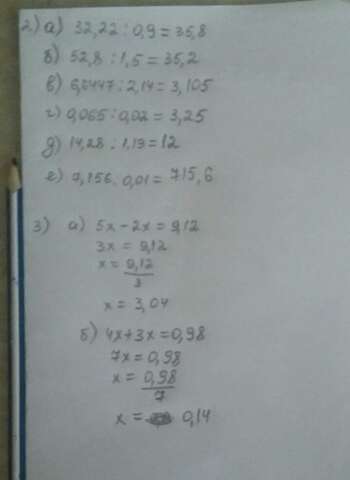 2.) а) 32,22 : 0,9 = 35,8
б) 52,8 : 1,5 = 35,2
в) 6,6447 : 2,14 = 3,105
г) 0,065 : 0,02 = 3,25
д) 14,28 : 1,19 = 12
е) 7,156 : 0,01 = 715,6
3) а) 5x - 2x = 9,12
3x = 9,12
x = 9,12
3
x = 3,04
б) 4x + 3x = 0,98
7x = 0,98
x = 0,98
7
x = 0,14